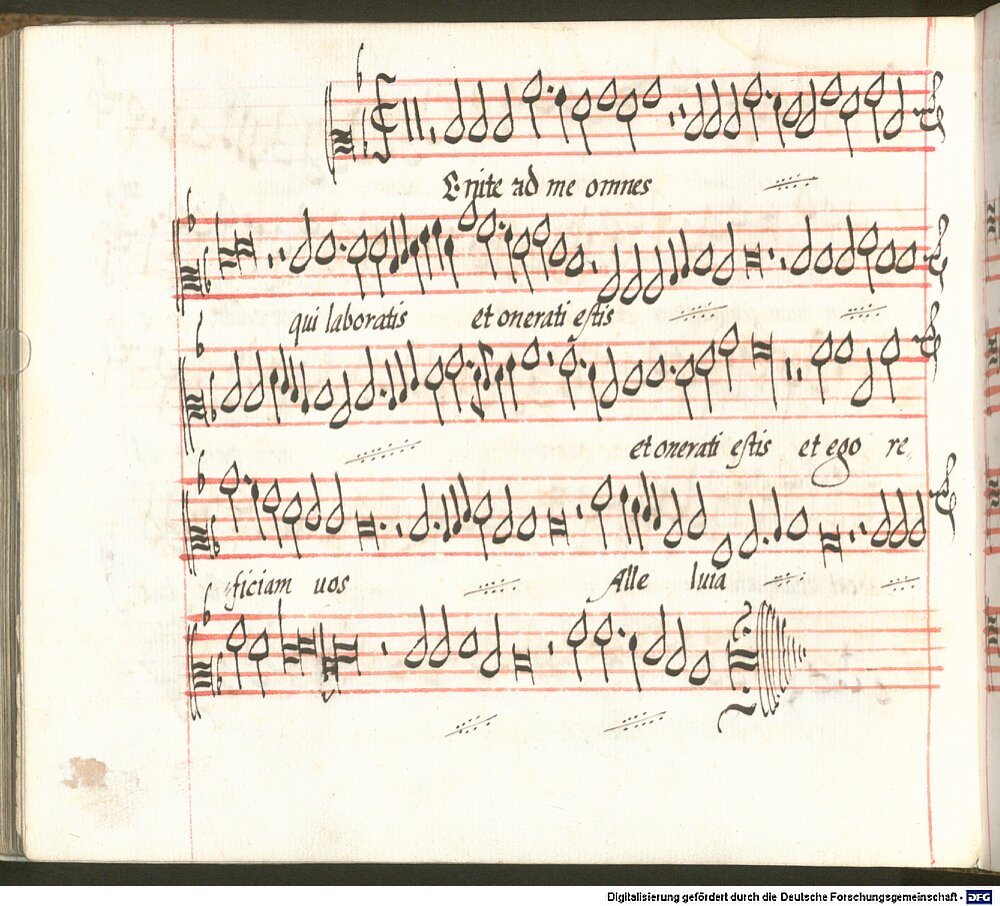 Enite ad me omnes
qui laboratis et onerati estis
et onerati estis et ego re-
-ficiam vos Alle luia
Digitalisierung gefördert durch die Deutsche Forschungsgemeinschaft - DFG